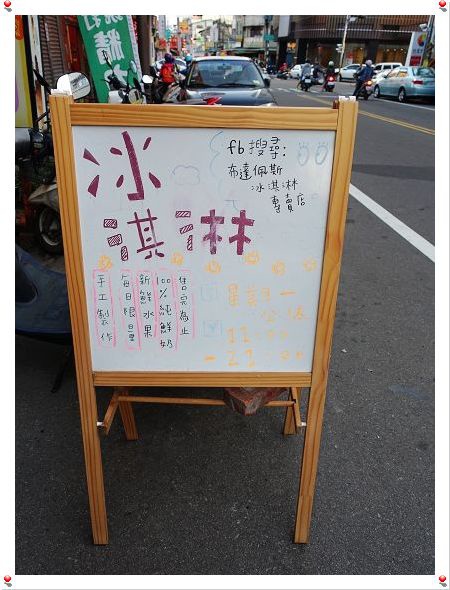 冰
淇淋
fb搜尋:
布達佩斯
冰淇淋
專賣店
手工製作
每日限量
新鮮水果
100%純鮮奶
售完為止
星期一
公休
11:00
-21:00